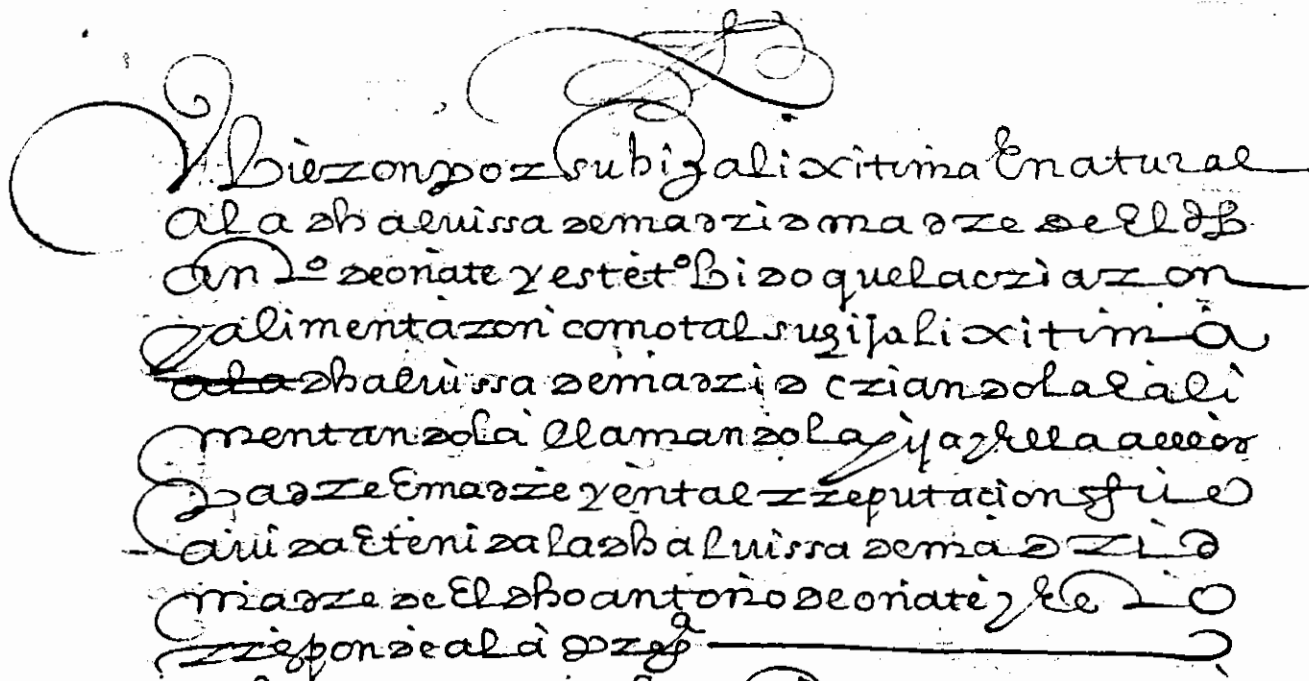 Ubieron por su hija lixitima E natural
a la dha aluissa de madrid madre de El dho
an.to de oñate y este t.o bido que la criaron
y alimentaron como tal su hija lixitima
a la dha aluissa de madrid criandola E ali
mentandola llamandola hija y ella a ellos
padre E madre y en tal rreputacion fue
auida E tenida la dha aluissa de madrid
madre de El dho antonio de oñate y esto
rresponde a la preg.ta